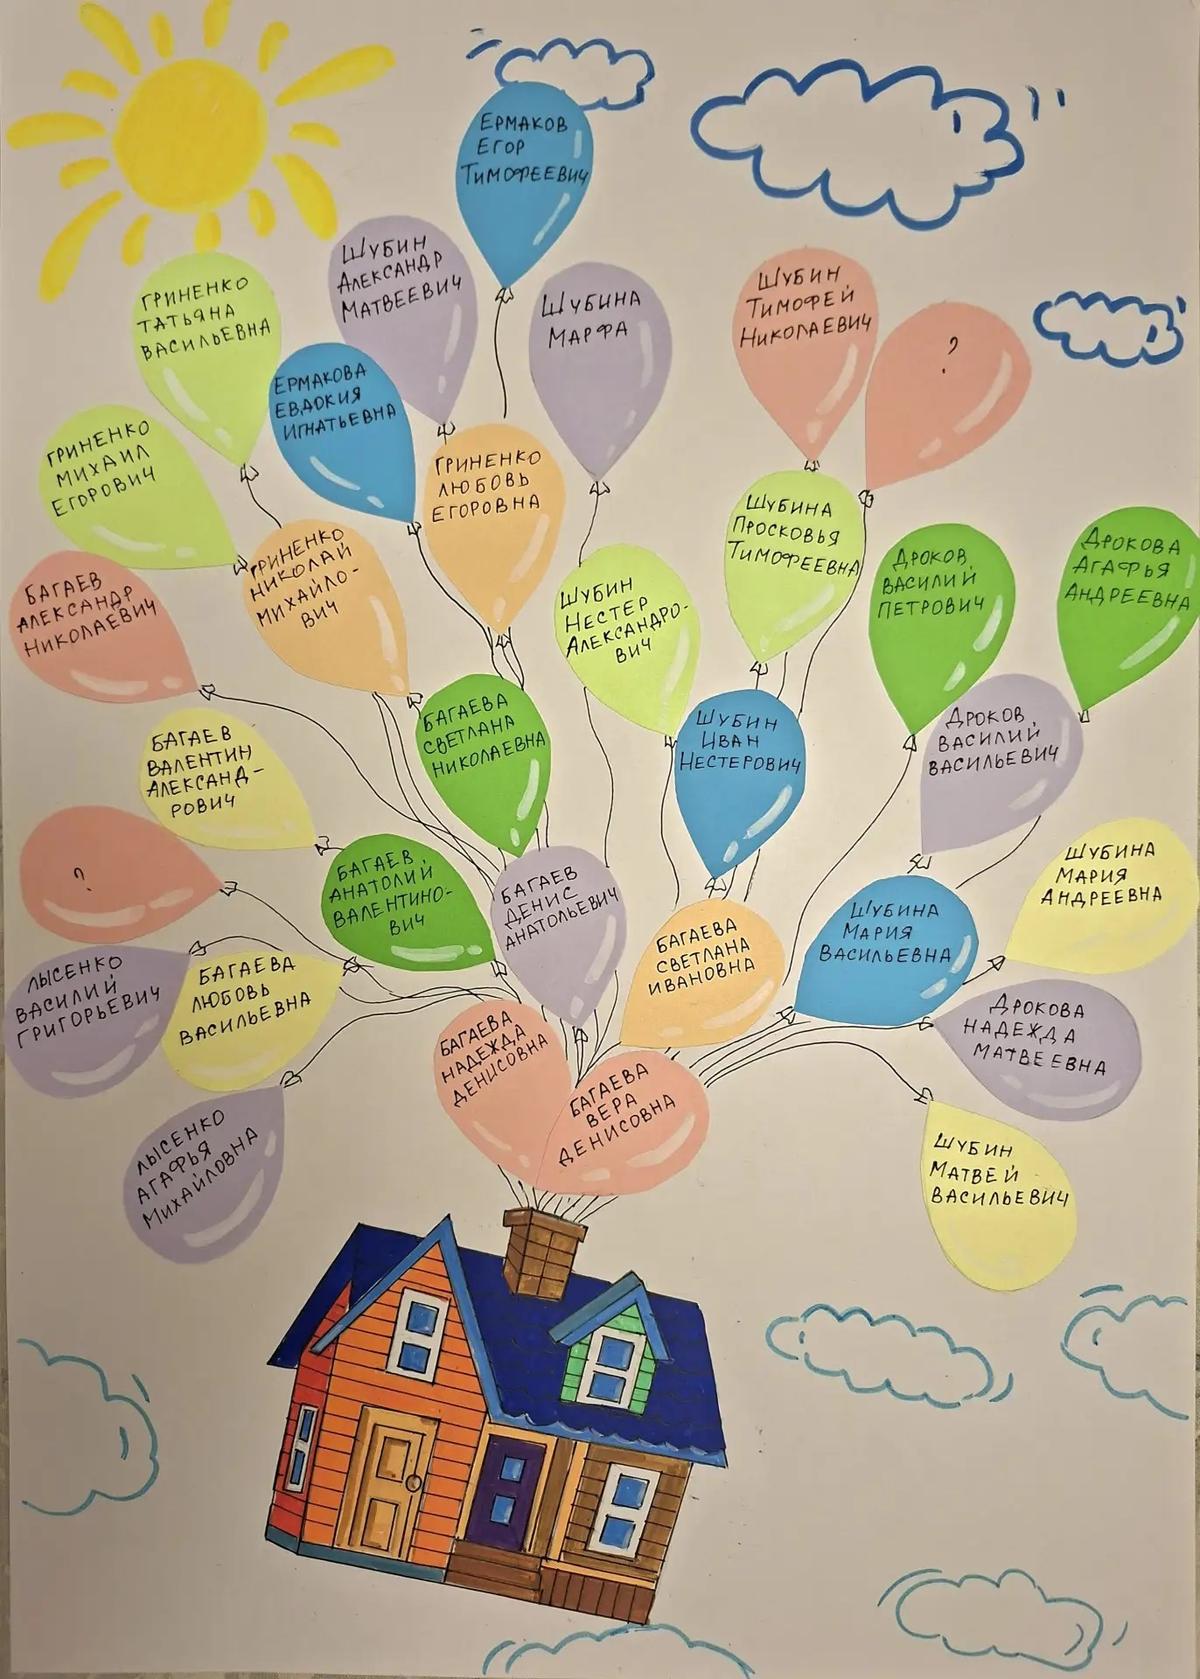 ЕРМАКОВ
ЕГОР
ТИМОФЕЕВИЧ
ШУБИН
АЛЕКСАНДР
МАТВЕЕВИЧ
ГРИНЕНКО
ТАТЬЯНА
ВАСИЛЬЕВНА
ШУБИНА
МАРФА
ШУБИН
ТИМОФЕЙ
НИКОЛАЕВИЧ
?
ЕРМАКОВА
ЕВДОКИЯ
ИГНАТЬЕВНА
ГРИНЕНКО
МИХАИЛ
ЕГОРОВИЧ
ГРИНЕНКО
ЛЮБОВЬ
ЕГОРОВНА
ШУБИНА
ПРОСКОВЬЯ
ТИМОФЕЕВНА
ГРИНЕНКО
НИКОЛАЙ
МИХАЙЛО-
ВИЧ
ДРОКОВ
ВАСИЛИЙ
ПЕТРОВИЧ
ДРОКОВА
АГАФЬЯ
АНДРЕЕВНА
БАГАЕВ
АЛЕКСАНДР
НИКОЛАЕВИЧ
ШУБИН
НЕСТЕР
АЛЕКСАНДРО-
ВИЧ
БАГАЕВА
СВЕТЛАНА
НИКОЛАЕВНА
ШУБИН
ИВАН
НЕСТЕРОВИЧ
ДРОКОВ
ВАСИЛИЙ
ВАСИЛЬЕВИЧ
БАГАЕВ
ВАЛЕНТИН
АЛЕКСАНД-
РОВИЧ
?
БАГАЕВ
АНАТОЛИЙ
ВАЛЕНТИНО-
ВИЧ
БАГАЕВ
ДЕНИС
АНАТОЛЬЕВИЧ
БАГАЕВА
СВЕТЛАНА
ИВАНОВНА
ШУБИНА
МАРИЯ
ВАСИЛЬЕВНА
ШУБИНА
МАРИЯ
АНДРЕЕВНА
ЛЫСЕНКО
ВАСИЛИЙ
ГРИГОРЬЕВИЧ
БАГАЕВА
ЛЮБОВЬ
ВАСИЛЬЕВНА
ДРОКОВА
НАДЕЖДА
МАТВЕЕВНА
БАГАЕВА
НАДЕЖДА
ДЕНИСОВНА
БАГАЕВА
ВЕРА
ДЕНИСОВНА
ЛЫСЕНКО
АГАФЬЯ
МИХАЙЛОВНА
ШУБИН
МАТВЕЙ
ВАСИЛЬЕВИЧ